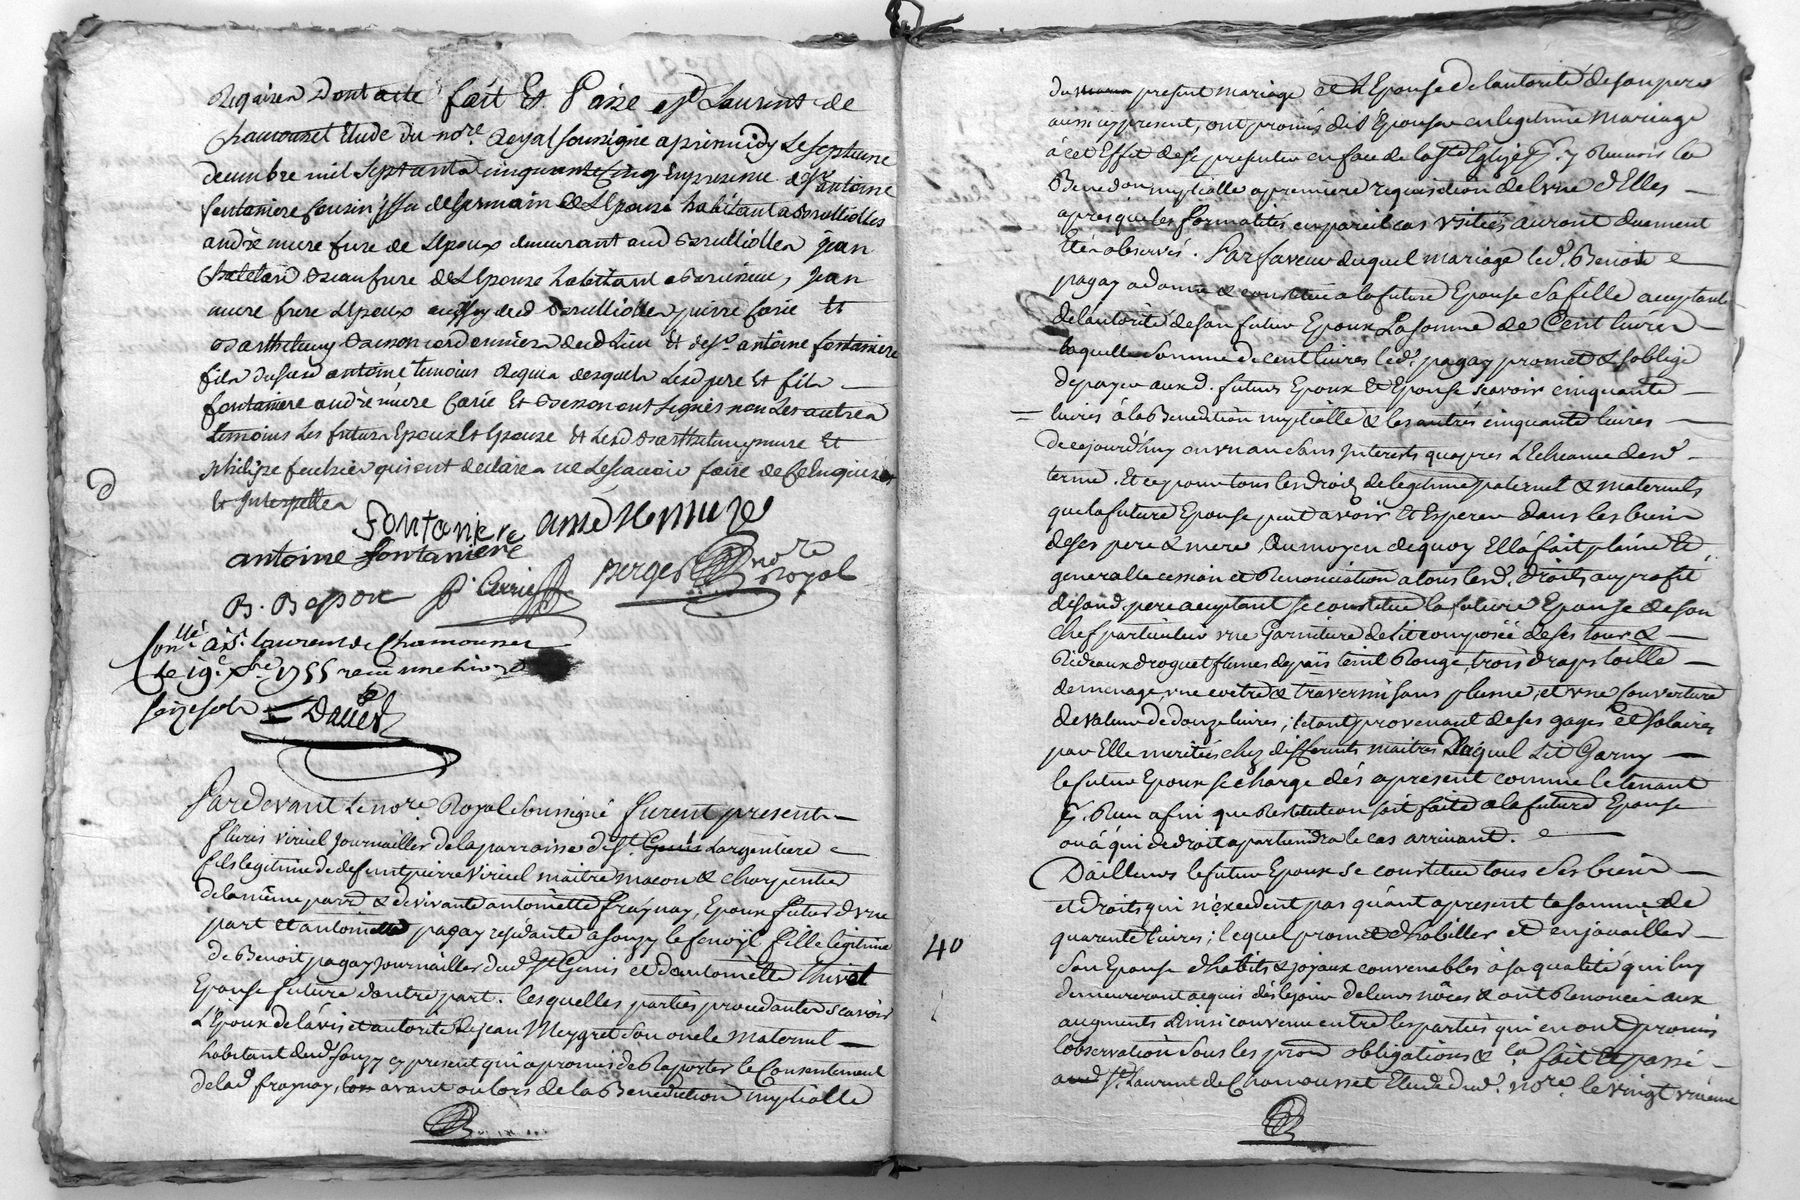 Requises Dont acte fait Et Passé a St Laurent de
Chamousset Etude du nore. Royal soussigné apres midy Le septieme
decembre mil Sept cents cinquante Cinq En presence de Sr antoine
fontaniere Cousin issu de Germain de L'Epouse habitant a Brulliolles
andré mure frere de L'Epoux demeurant aud Brulliolles jean
Beaufrere de L'Epouse habittant a jean
mure frere L'Epoux aussy dud Brulliolles pierre Carié Et
Barthelemy Besson cordonniers dud Lieu Et de Sr. antoine fontaniere
fils dusieur antoine temoins Requis desquels Lesd pere Et fils
fontaniere andré mure Carié Et Besson ont signés non Les autres
temoins Les futurs Epoux Et Epouse Et Lesd Barthelemy mure Et
philipe qui ont declarés ne Le scavoir faire de Ce Enquis
Et Interpellés
Fontaniere andre mure
antoine fontaniere
B. Beson P. Carrié Berger nore Royal
Conllé. a St. Laurent de Chamousset
Le 19e. Xbre 1755 reçu une livre
seize sols Daller
Pardevant Le nore. Royal Soussigné furent presents
fleuris Viricel Journaillier de la parroisse de St. Genis Largentiere
fils legitime de defunt pierre Viricel maitre macon & charpentier
de la même parr. & de vivante antoinette fraynay, Epoux futur d'une
part Et antoinette pagay residante a souzy le fenoÿl fille legitime
de Benoit pagay Journaillier dud. St Genis et d'antoinette thivel
Epouse future d'autre part. lesquelles parties procedantes scavoir
L'Epoux de l'avis et autorité de jean Meygret son oncle maternel
habitant dud. souzy cy present qui a promis de Raporter le Consentement
de lad. fraynay, avant ou lors de la Benediction nuptialle
40
du present mariage et L'Epouse de l'autorité de son pere
aussy cy present, ont promis de s'Epouser en legitime mariage
à cet Effet de se presenter en face de la Ste Eglize Pr. y Recevoir la
Benedon nuptialle a premiere requisition de l'une d'Elles
apres que les formalités en pareil cas usitées auront duement
Eté observés. Par faveur duquel mariage led. Benoit
pagay a donné & constitué a la future Epouse sa fille acceptante
de l'autorité de son futur Epoux La somme de Cent livres
laquelle somme de cent livres led. pagay promet & s'oblige
de payer auxd. futurs Epoux & Epouse scavoir cinquante
livres à la Benediction nuptialle & les autres cinquante livres
de cejourd'huy en un an sans Interests qu'apres L'Echeance dud.
terme. Et ce pour tous les droits de legitime paternels & maternels
que la future Epouse peut avoir Et Esperer dans les biens
de ses pere & mere, Au moyen de quoy Ella fait plaine Et
generalle cession et Renonciation a tous lesd. droits au profit
de sond. pere acceptant se constitue la future Epouse de son
chef particulier une Garniture de Lit composée de ses tour &
Rideaux droguet fil du païs teint Rouge, trois draps toille
de menage, une coetre & traversin sans plume, et une couverture
de valeur de douze livres; le tout provenant de ses gages et salaires
par Elle merités chez differents maitres Duquel Lit Garny
le futur Epoux se charge dés apresent comme le tenant
Pr. Reçu afin que Restitution soit faite a la future Epouse
ou à qui de droit apartiendra le cas arrivant.
D'ailleurs le futur Epoux se constitue tous ses biens
et droits qui n'excedent pas quánt apresent la somme de
quarante livres; lequel promet d'habiller et enjoüailler
son Epouse d'habits & joyaux convenables à sa qualité qui luy
demeureront acquis dés le jour de leurs nôces & ont Renoncés aux
augments Ainsi convenu entre les parties qui en ont promis
l'observation sous les pnes obligations & ca fait Et passé
aud St. Laurent de Chamousset Etude dud. nore. le vingt uniéme